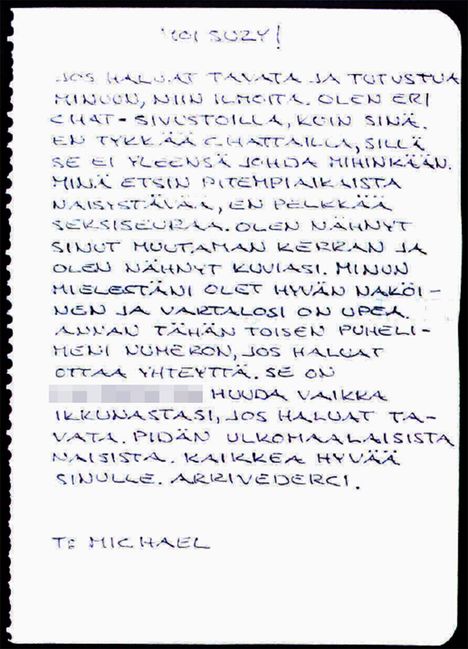 MOI SUZY!
JOS HALUAT TAVATA JA TUTUSTUA
MINUUN, NIIN ILMOITA. OLEN ERI
CHAT-SIVUSTOILLA, KUIN SINÄ.
EN TYKKÄÄ CHATTAILLA, SILLÄ
SE EI YLEENSÄ JOHDA MIHINKÄÄN.
MINÄ ETSIN PITEMPIAIKAISTA
NAISYSTÄVÄÄ, EN PELKKÄÄ
SEKSISEURAA. OLEN NÄHNYT
SINUT MUUTAMAN KERRAN JA
OLEN NÄHNYT KUVIASI. MINUN
MIELESTÄNI OLET HYVÄN NÄKÖI-
NEN JA VARTALOSI ON UPEA.
ANNAN TÄHÄN TOISEN PUHELI-
MENI NUMERON, JOS HALUAT
OTTAA YHTEYTTÄ. SE ON
HUUDA VAIKKA
IKKUNASTASI, JOS HALUAT TA-
VATA. PIDÄN ULKOMAALAISISTA
NAISISTA. KAIKKEA HYVÄÄ
SINULLE. ARRIVEDERCI.
T: MICHAEL